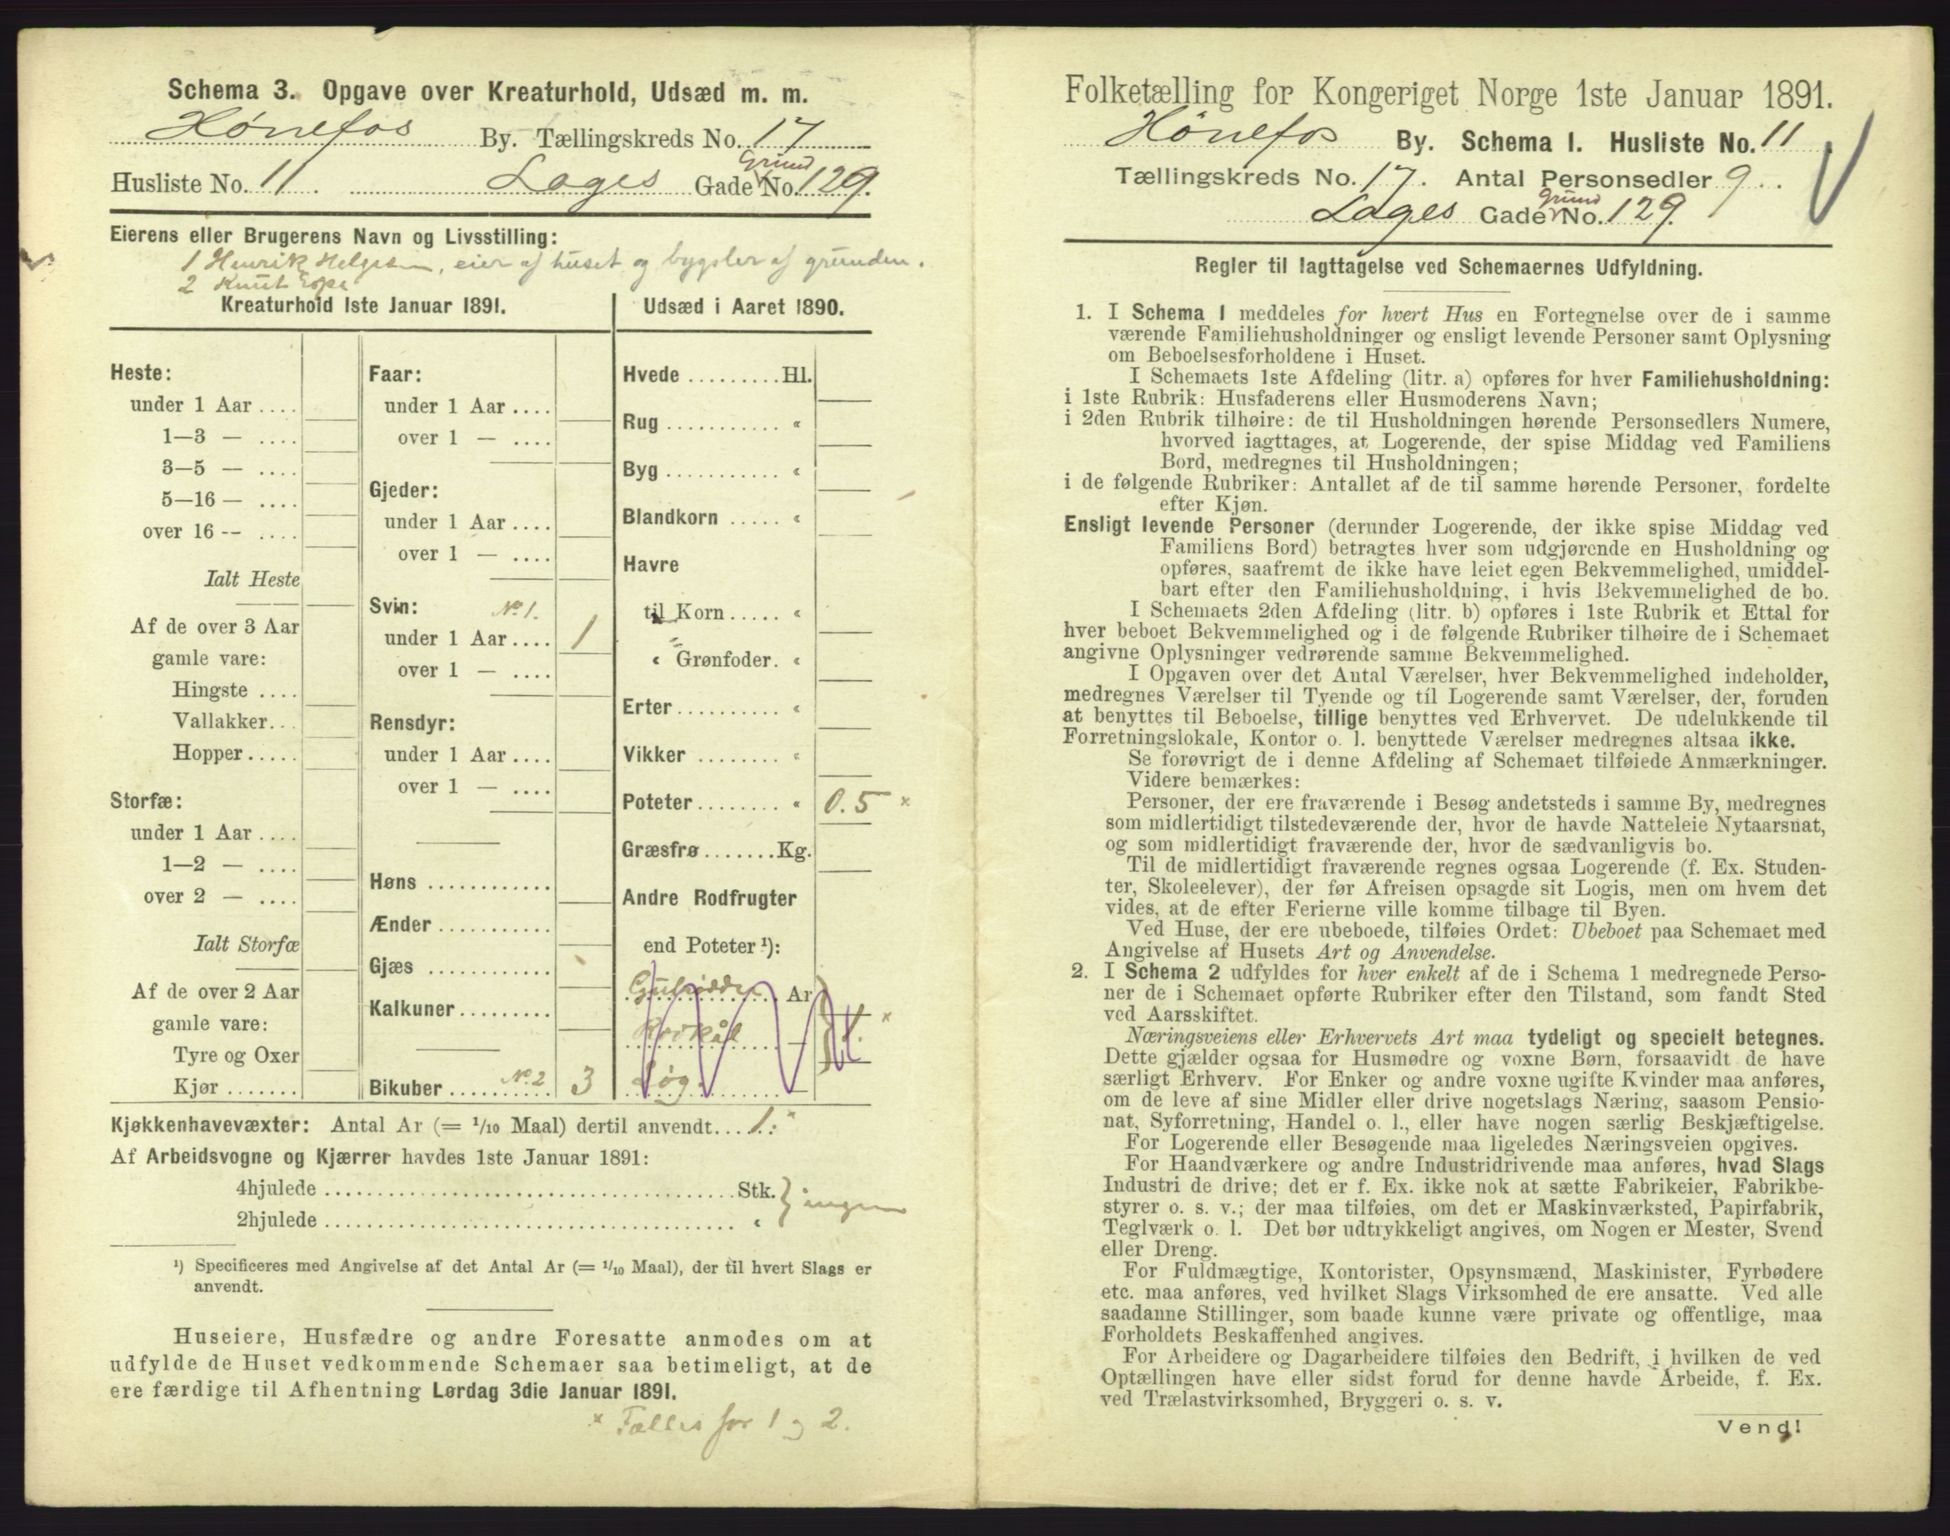 Schema 3. Opgave over Kreaturhold, Udsæd m. m.
Hønefos By. Tællingskreds No. 17
Husliste No. 11. Lages Gade Grund No. 129.
Eierens eller Brugerens Navn og Livsstilling:
1 Henrik Helgesen, eier af huset og bygsler af grunden.
2 Knut
Kreaturhold 1ste Januar 1891.
Heste:
under 1 Aar ....
1—3 — ....
3—5 — ....
5—16 — ....
over 16 -- ....
Ialt Heste
Af de over 3 Aar
gamle vare:
Hingste ....
Vallakker...
Hopper.....
Storfæ:
under 1 Aar ....
1—2 — ....
over 2 — ....
Ialt Storfæ
Af de over 2 Aar
gamle vare:
Tyre og Oxer
Kjør .......
Faar:
under 1 Aar ....
over 1 — ....
Gjeder:
under 1 Aar ....
over 1 — ....
Svin: No. 1.
under 1 Aar .... 1
over 1 — ....
Rensdyr:
under 1 Aar ....
over 1 — ....
Høns ............
Ænder ...........
Gjæs ............
Kalkuner ........
Bikuber ......... No. 2 3
Udsæd i Aaret 1890.
Hvede .........Hl.
Rug ........... "
Byg ........... "
Blandkorn ..... "
Havre
til Korn ..... "
" Grønfoder. "
Erter.......... "
Vikker ........ "
Poteter........ " 0.5 ×
Græsfrø.......Kg.
Andre Rodfrugter
end Poteter ¹):
Gulrødder Ar
Rodkål — 1. ×
Løg. —
Kjøkkenhavevæxter: Antal Ar (= 1/10 Maal) dertil anvendt.... 1. ×
Af Arbeidsvogne og Kjærrer havdes 1ste Januar 1891:
4hjulede ....................Stk. } ingen
2hjulede .................... "
¹) Specificeres med Angivelse af det Antal Ar (= 1/10 Maal), der til hvert Slags er
anvendt.
Huseiere, Husfædre og andre Foresatte anmodes om at
udfylde de Huset vedkommende Schemaer saa betimeligt, at de
ere færdige til Afhentning Lørdag 3die Januar 1891.
× Fælles for 1 og 2.
Folketælling for Kongeriget Norge 1ste Januar 1891.
Hønefos By. Schema I. Husliste No. 11
Tællingskreds No. 17. Antal Personsedler 9
Lages Gade Grund No. 129.
Regler til Iagttagelse ved Schemaernes Udfyldning.
1. I Schema 1 meddeles for hvert Hus en Fortegnelse over de i samme
værende Familiehusholdninger og ensligt levende Personer samt Oplysning
om Beboelsesforholdene i Huset.
I Schemaets 1ste Afdeling (litr. a) opføres for hver Familiehusholdning:
i 1ste Rubrik: Husfaderens eller Husmoderens Navn;
i 2den Rubrik tilhøire: de til Husholdningen hørende Personsedlers Numere,
hvorved iagttages, at Logerende, der spise Middag ved Familiens
Bord, medregnes til Husholdningen;
i de følgende Rubriker: Antallet af de til samme hørende Personer, fordelte
efter Kjøn.
Ensligt levende Personer (derunder Logerende, der ikke spise Middag ved
Familiens Bord) betragtes hver som udgjørende en Husholdning og
opføres, saafremt de ikke have leiet egen Bekvemmelighed, umiddel-
bart efter den Familiehusholdning, i hvis Bekvemmelighed de bo.
I Schemaets 2den Afdeling (litr. b) opføres i 1ste Rubrik et Ettal for
hver beboet Bekvemmelighed og i de følgende Rubriker tilhøire de i Schemaet
angivne Oplysninger vedrørende samme Bekvemmelighed.
I Opgaven over det Antal Værelser, hver Bekvemmelighed indeholder,
medregnes Værelser til Tyende og til Logerende samt Værelser, der, foruden
at benyttes til Beboelse, tillige benyttes ved Erhvervet. De udelukkende til
Forretningslokale, Kontor o. l. benyttede Værelser medregnes altsaa ikke.
Se forøvrigt de i denne Afdeling af Schemaet tilføiede Anmærkninger.
Videre bemærkes:
Personer, der ere fraværende i Besøg andetsteds i samme By, medregnes
som midlertidigt tilstedeværende der, hvor de havde Natteleie Nytaarsnat,
og som midlertidigt fraværende der, hvor de sædvanligvis bo.
Til de midlertidigt fraværende regnes ogsaa Logerende (f. Ex. Studen-
ter, Skoleelever), der før Afreisen opsagde sit Logis, men om hvem det
vides, at de efter Ferierne ville komme tilbage til Byen.
Ved Huse, der ere ubeboede, tilføies Ordet: Ubeboet paa Schemaet med
Angivelse af Husets Art og Anvendelse.
2. I Schema 2 udfyldes for hver enkelt af de i Schema 1 medregnede Perso-
ner de i Schemaet opførte Rubriker efter den Tilstand, som fandt Sted
ved Aarsskiftet.
Næringsveiens eller Erhvervets Art maa tydeligt og specielt betegnes.
Dette gjælder ogsaa for Husmødre og voxne Børn, forsaavidt de have
særligt Erhverv. For Enker og andre voxne ugifte Kvinder maa anføres,
om de leve af sine Midler eller drive nogetslags Næring, saasom Pensio-
nat, Syforretning, Handel o. l., eller have nogen særlig Beskjæftigelse.
For Logerende eller Besøgende maa ligeledes Næringsveien opgives.
For Haandværkere og andre Industridrivende maa anføres, hvad Slags
Industri de drive; det er f. Ex. ikke nok at sætte Fabrikeier, Fabrikbe-
styrer o. s. v.; der maa tilføies, om det er Maskinværksted, Papirfabrik,
Teglværk o. l. Det bør udtrykkeligt angives, om Nogen er Mester, Svend
eller Dreng.
For Fuldmægtige, Kontorister, Opsynsmænd, Maskinister, Fyrbødere
etc. maa anføres, ved hvilket Slags Virksomhed de ere ansatte. Ved alle
saadanne Stillinger, som baade kunne være private og offentlige, maa
Forholdets Beskaffenhed angives.
For Arbeidere og Dagarbeidere tilføies den Bedrift, i hvilken de ved
Optællingen have eller sidst forud for denne havde Arbeide, f. Ex.
ved Trælastvirksomhed, Bryggeri o. s. v.
Vend!